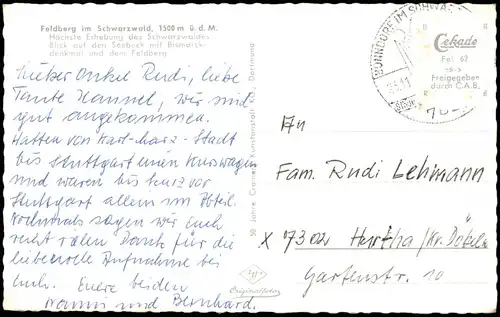 Feldberg im Schwarzwald, 1500 m ü. d. M.
Höchste Erhebung des Schwarzwaldes
Blick auf den Seebuck mit Bismarck-
denkmal und dem Feldberg
Lieber Onkel Rudi, liebe
Tante Hannel, wir sind
gut angekommen.
Hatten von Karl-Marx-Stadt
bis Stuttgart einen Kurswagen
und waren bis kurz vor
Stuttgart allein im Abteil.
Nochmals sagen wir Euch
recht vielen Dank für die
liebevolle Aufnahme bei
Euch. Eure beiden
Nanni und Bernhard.
50 Jahre Cramers Kunstanstalt KG., Dortmund
Originalfoto
BONNDORF IM SCHWAR
Cekade
Fel 62
Freigegeben
durch C.A.B.
An
Fam. Rudi Lehmann
X 7302 Hartha/Kr. Döbeln
Gartenstr. 10